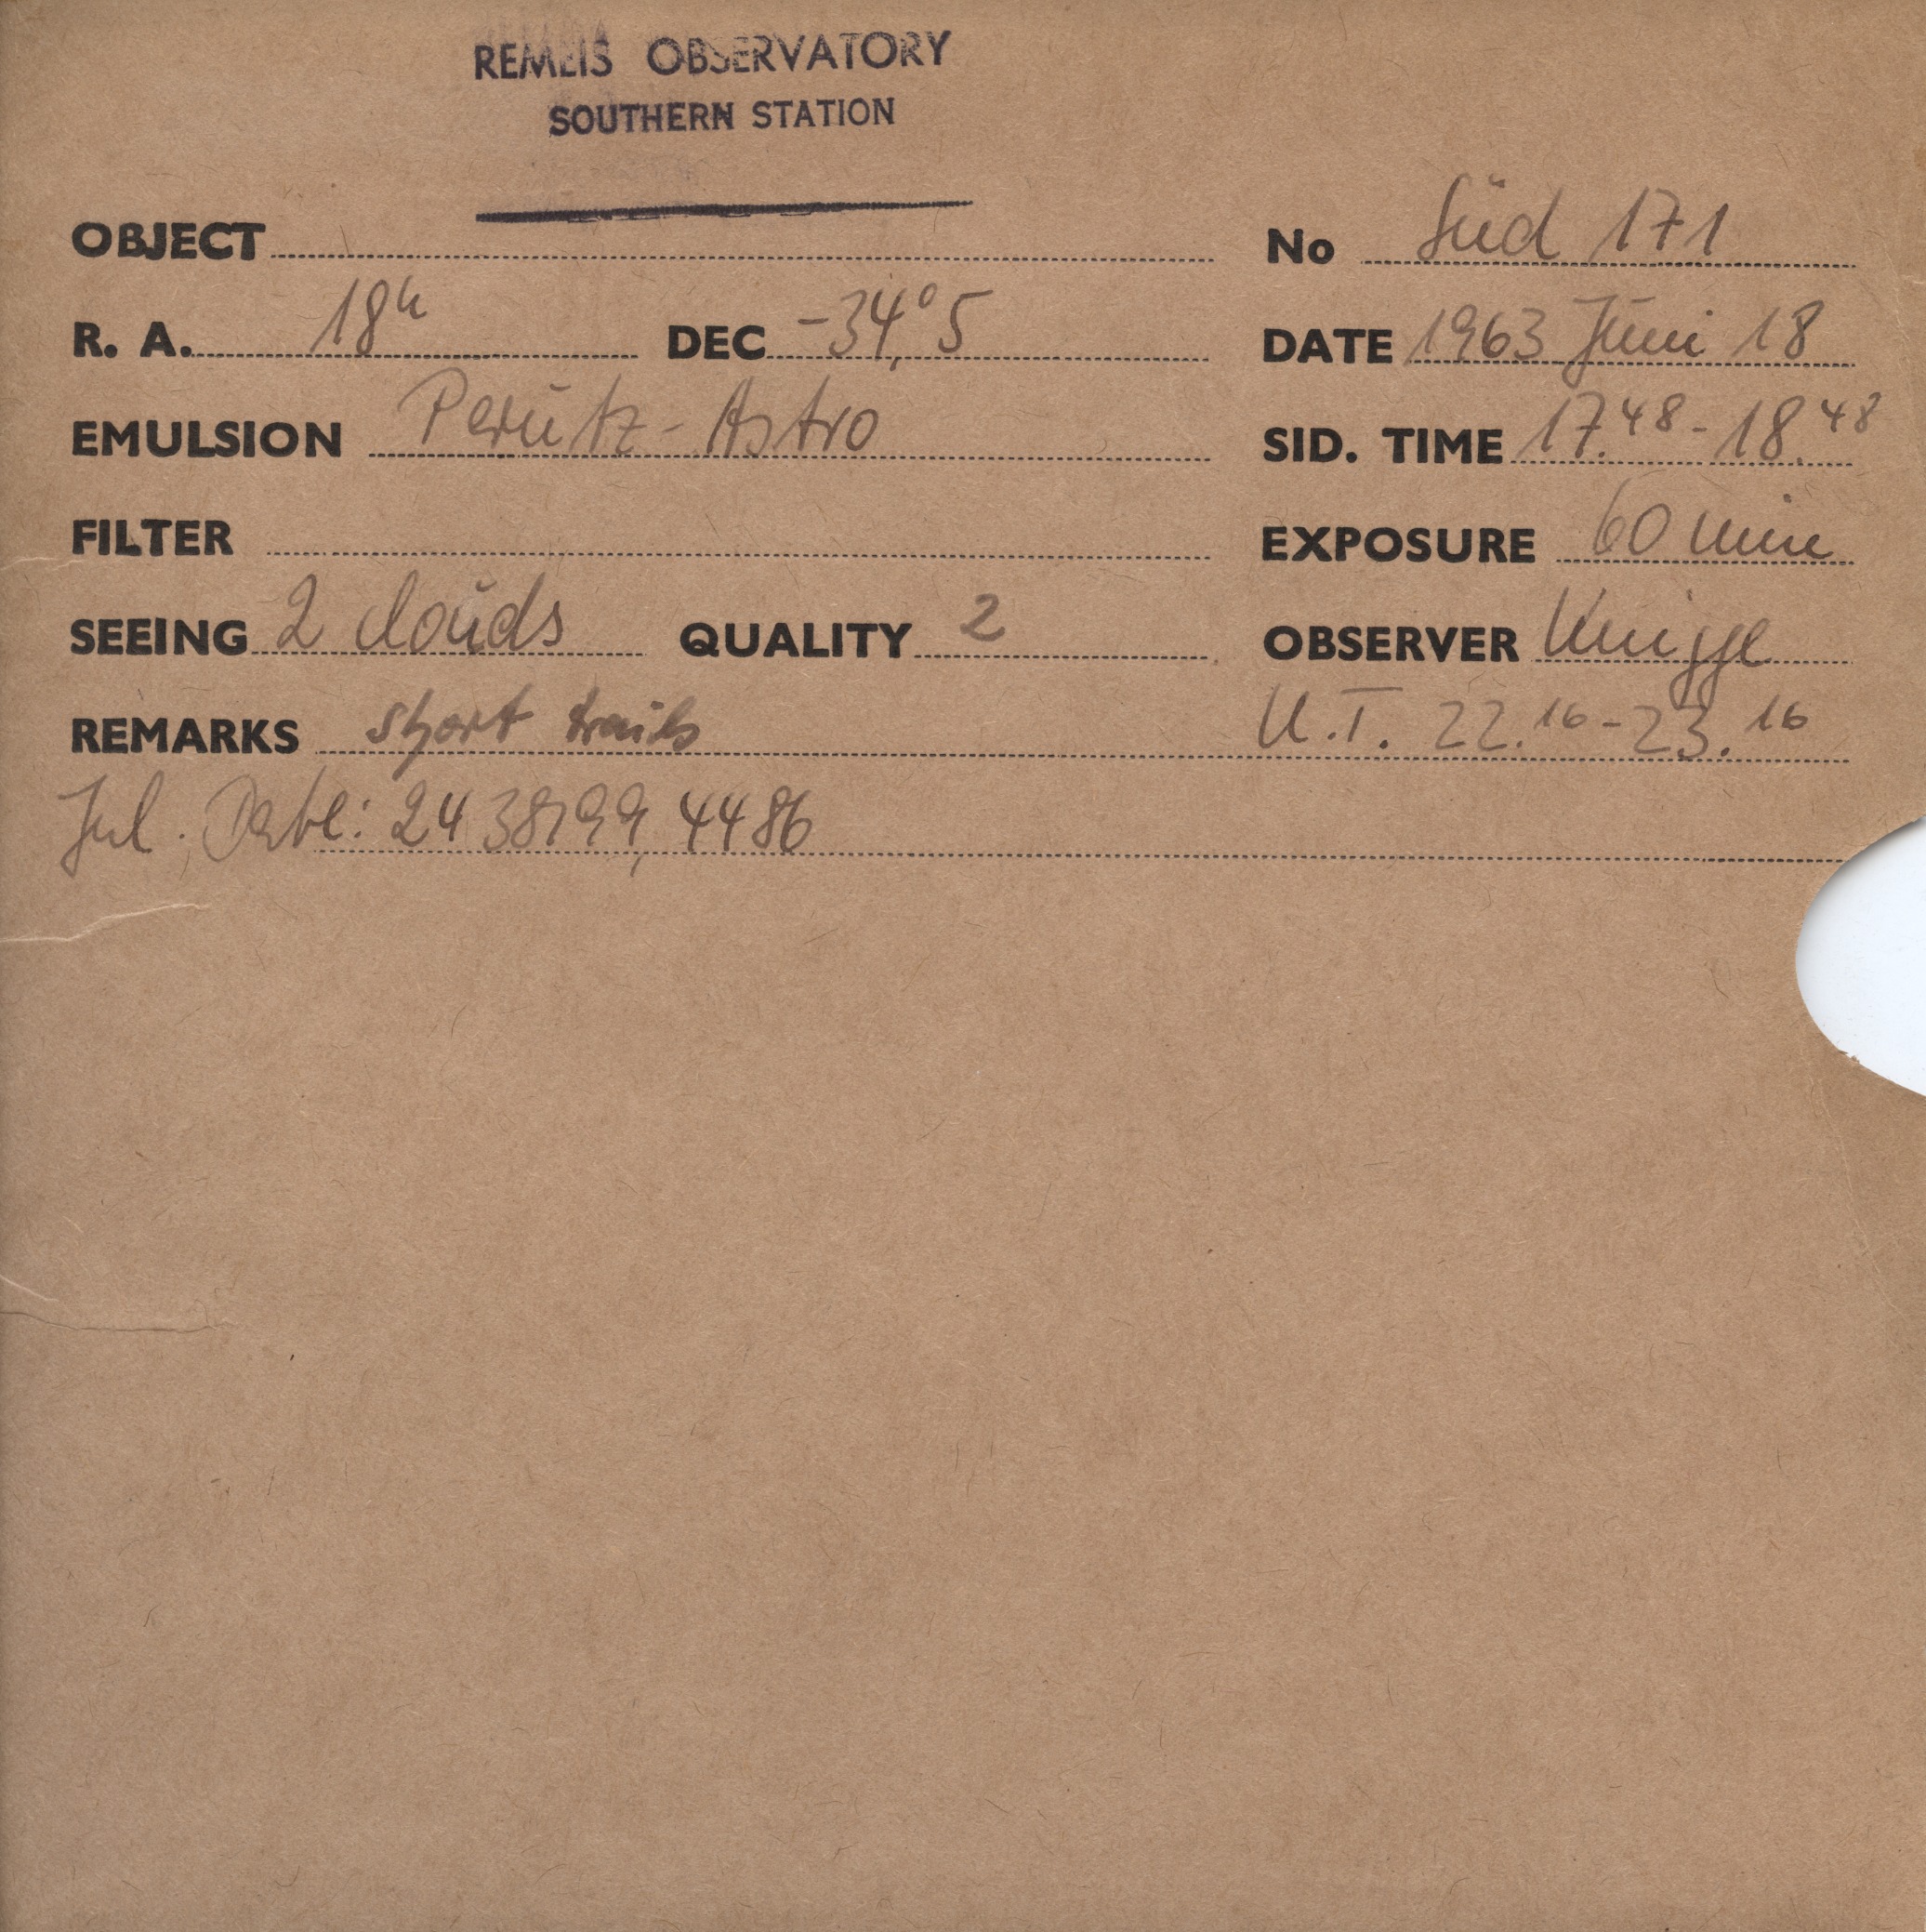 REMEIS OBSERVATORY
SOUTHERN STATION
OBJECT
No Süd 171
R. A. 18h DEC -34,°5
DATE 1963 Juni 18
EMULSION Perutz-Astro
SID. TIME 17.48 - 18.48
FILTER
EXPOSURE 60 min
SEEING 2 clouds QUALITY 2
OBSERVER Knigge
REMARKS short trails
U.T. 22.16 - 23.16
Jul. Date: 2438199,4486